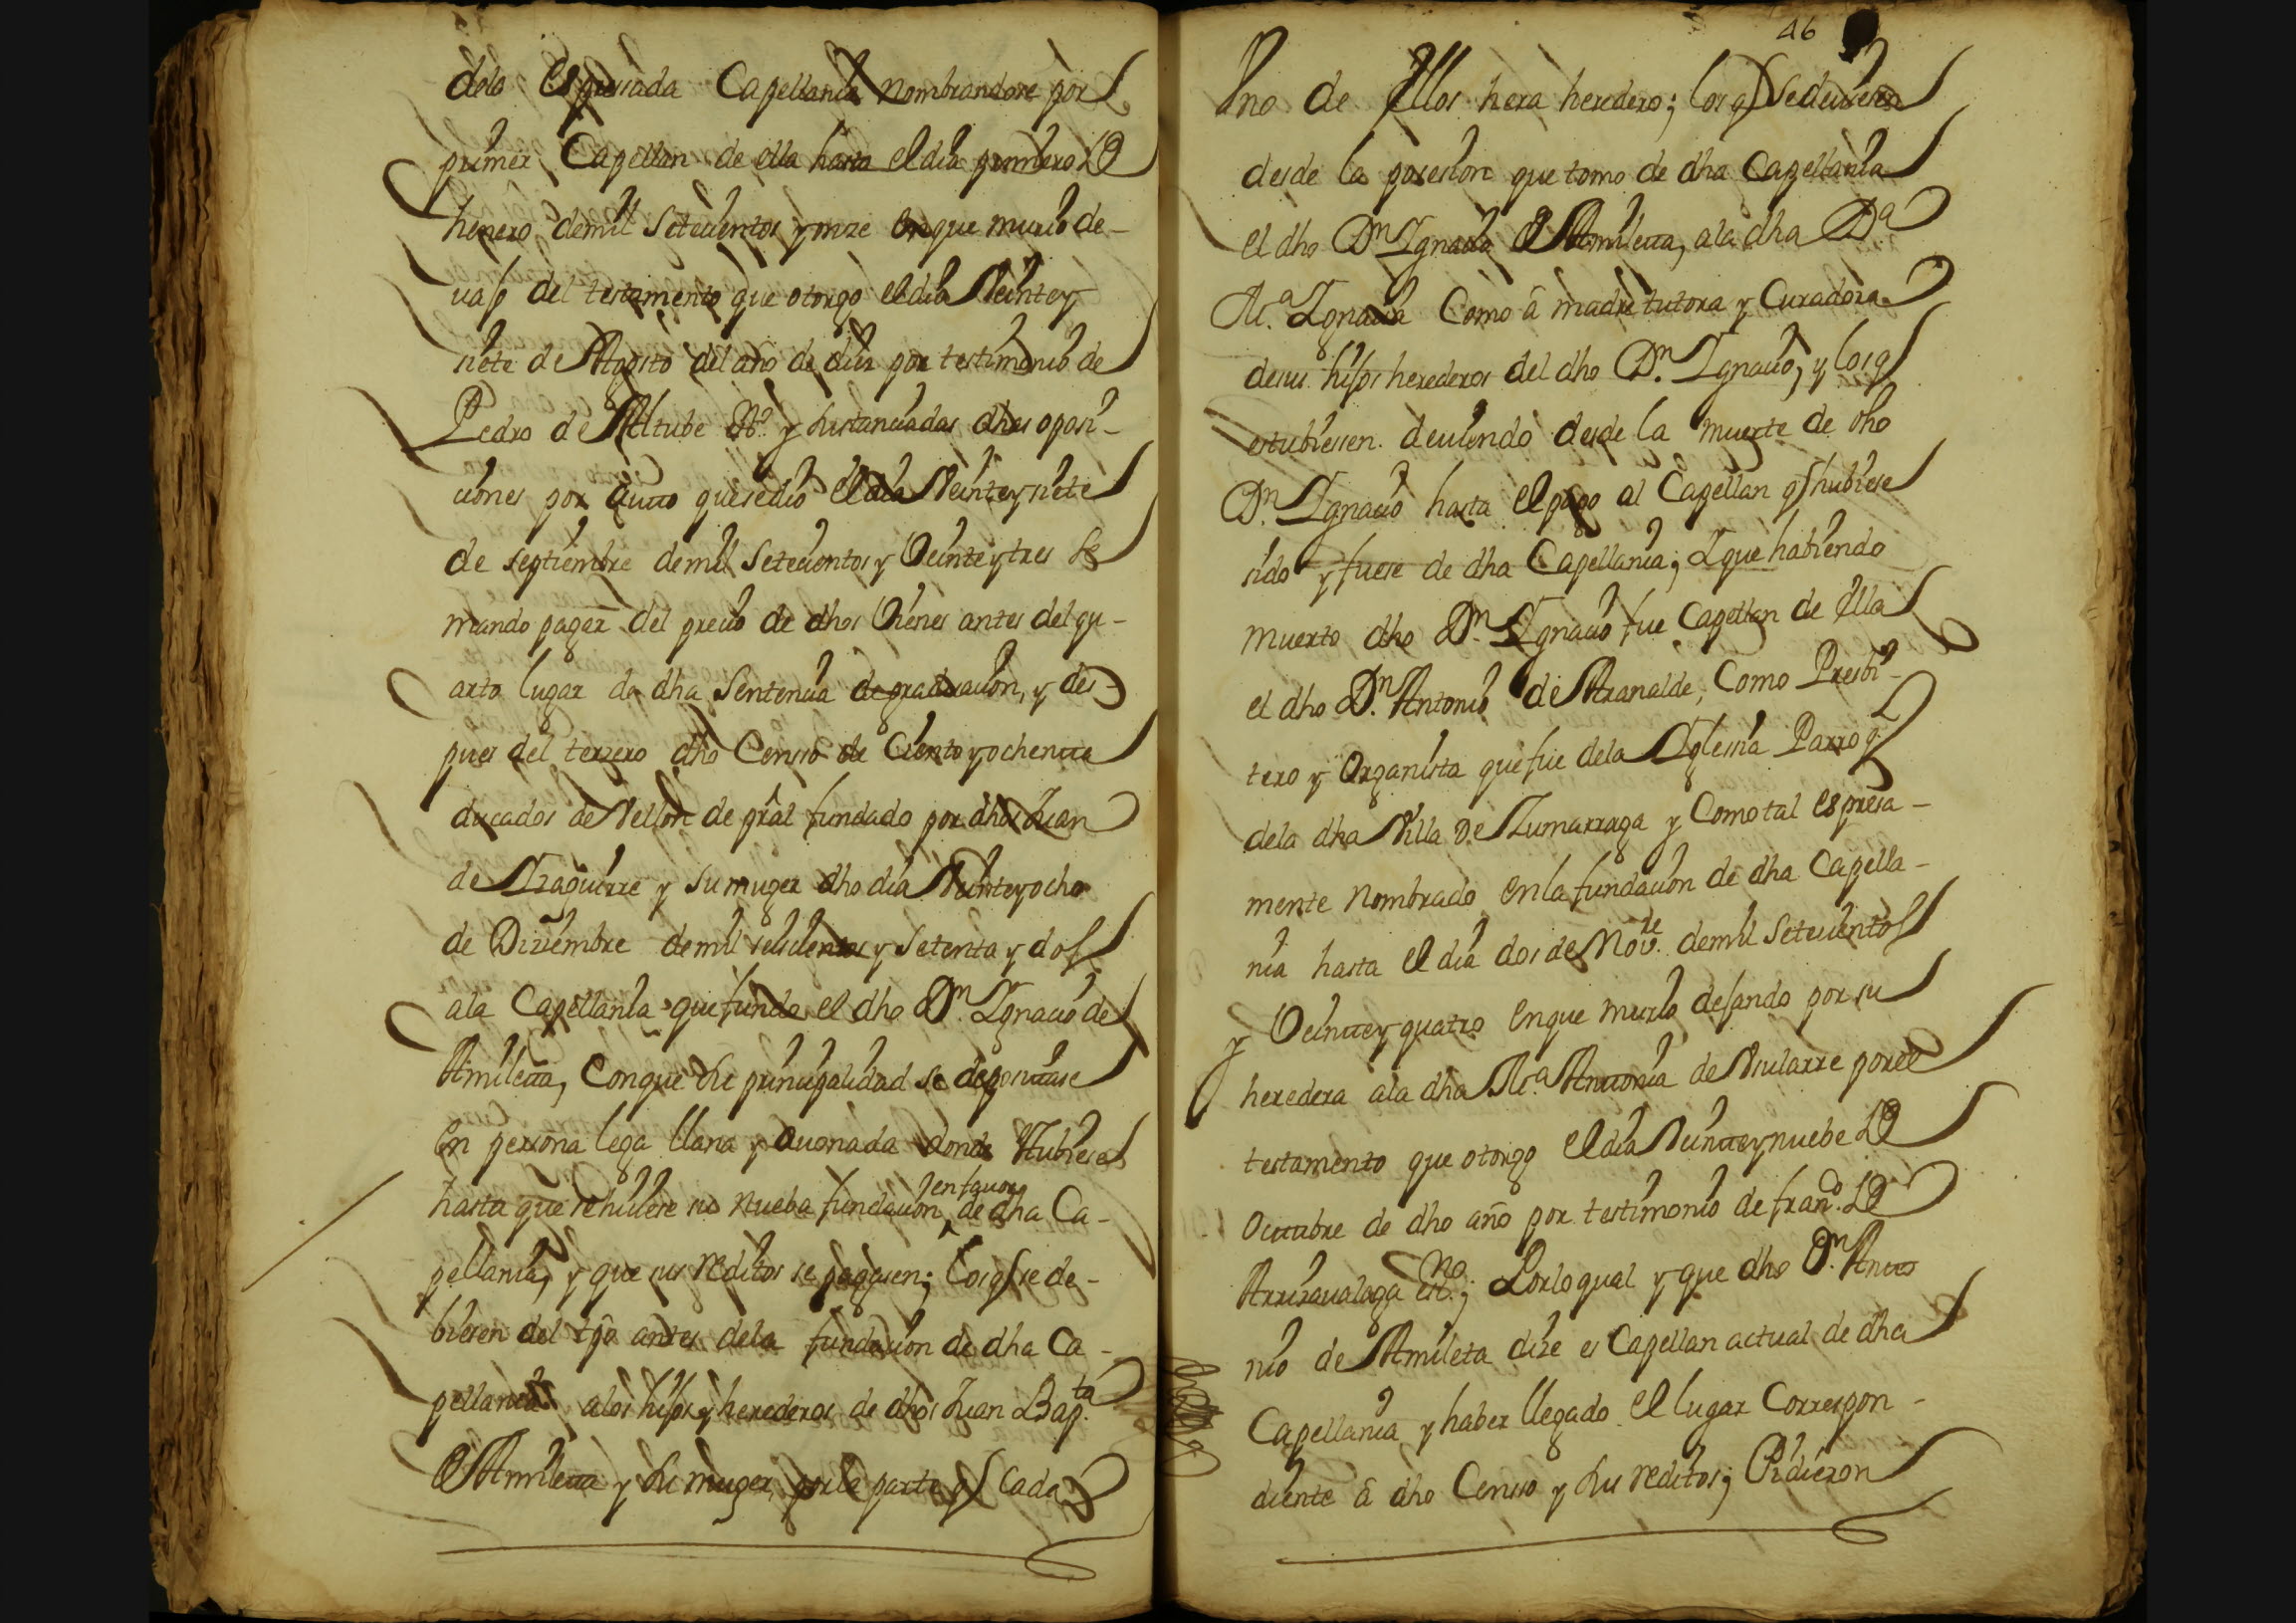 dela Espresada Capellania nombrandose por
primer Capellan de ella hasta el dia primero De
henero demil Setecientos y onze enque murio de-
uajo del testamento que otorgo el dia Veintey
siete de Agosto del año de diez por testimonio de
Pedro de Altube Nº. y sustanciadas dhas oposi-
ciones por autto quesedio el dia Veinteysiete
de septiembre demil Setecientos y Veinteytres se
mando pagar del precio de dhos Vienes antes del qu-
arto lugar de dha Sentencia de graduacion, y des-
pues del terzero dho Censso de Ciento yochentta
ducados de Vellon de pral fundado por dhos Juan
de Izaguirre y su muger dho dia Veinteyocho
de Diziembre demil seiscientos y setenta y dos
ala Capellania que fundo el dho Dn. Ignacio de
Amiletta, Conque su principalidad se deposittase
en persona lega llana y auonada donde Hubiese
hasta que sehiciese su nueba fundacion enfauor de dha Ca-
pellania, y que sus reditos se pagasen; los q se de-
biesen del tpo antes dela fundacion de dha Ca-
pellania alos hijos y herederos de dhos Juan Bapta.
De Amiletta y su muger por la parte q Cada
46
Uno de Ellos hera heredero; los q sedeuiesen
desde la posesion que tomo de dha Capellania
el dho Dn Ignacio De Amiletta, ala dha Da.
Ma. Ignacia Como â madre tutora y Curadora
desus hijos herederos del dho Dn. Ignacio, y los q
estubiessen deuiendo desde la muerte de dho
Dn. Ignacio hasta el pago al Capellan q hubiese
sido y fuese de dha Capellania; Y que habiendo
muerto dho Dn. Ignacio fue Capellan de Ella
el dho Dn. Antonio de Aranalde, Como Presbi-
tero y Organista que fue dela Iglessia Parroq.
dela dha Villa De Zumarraga y Comotal espresa-
mente nombrado enla fundacion de dha Capella-
nia hasta el dia dos de Nove. demil Setecientos
y Veinttey quatro enque murio dejando por su
heredera ala dha Ma. Anttonia de porel
testamento que otorgo el dia Veintteynuebe De
Octtubre de dho año por testimonio de frano. De
Arrizaualaga esno.; Porloqual y que dho Dn. Antto
nio de Amileta dize es Capellan actual de dha
Capellania y haber llegado el lugar Correspon-
diente â dho Censso y sus reditos; Pidieron